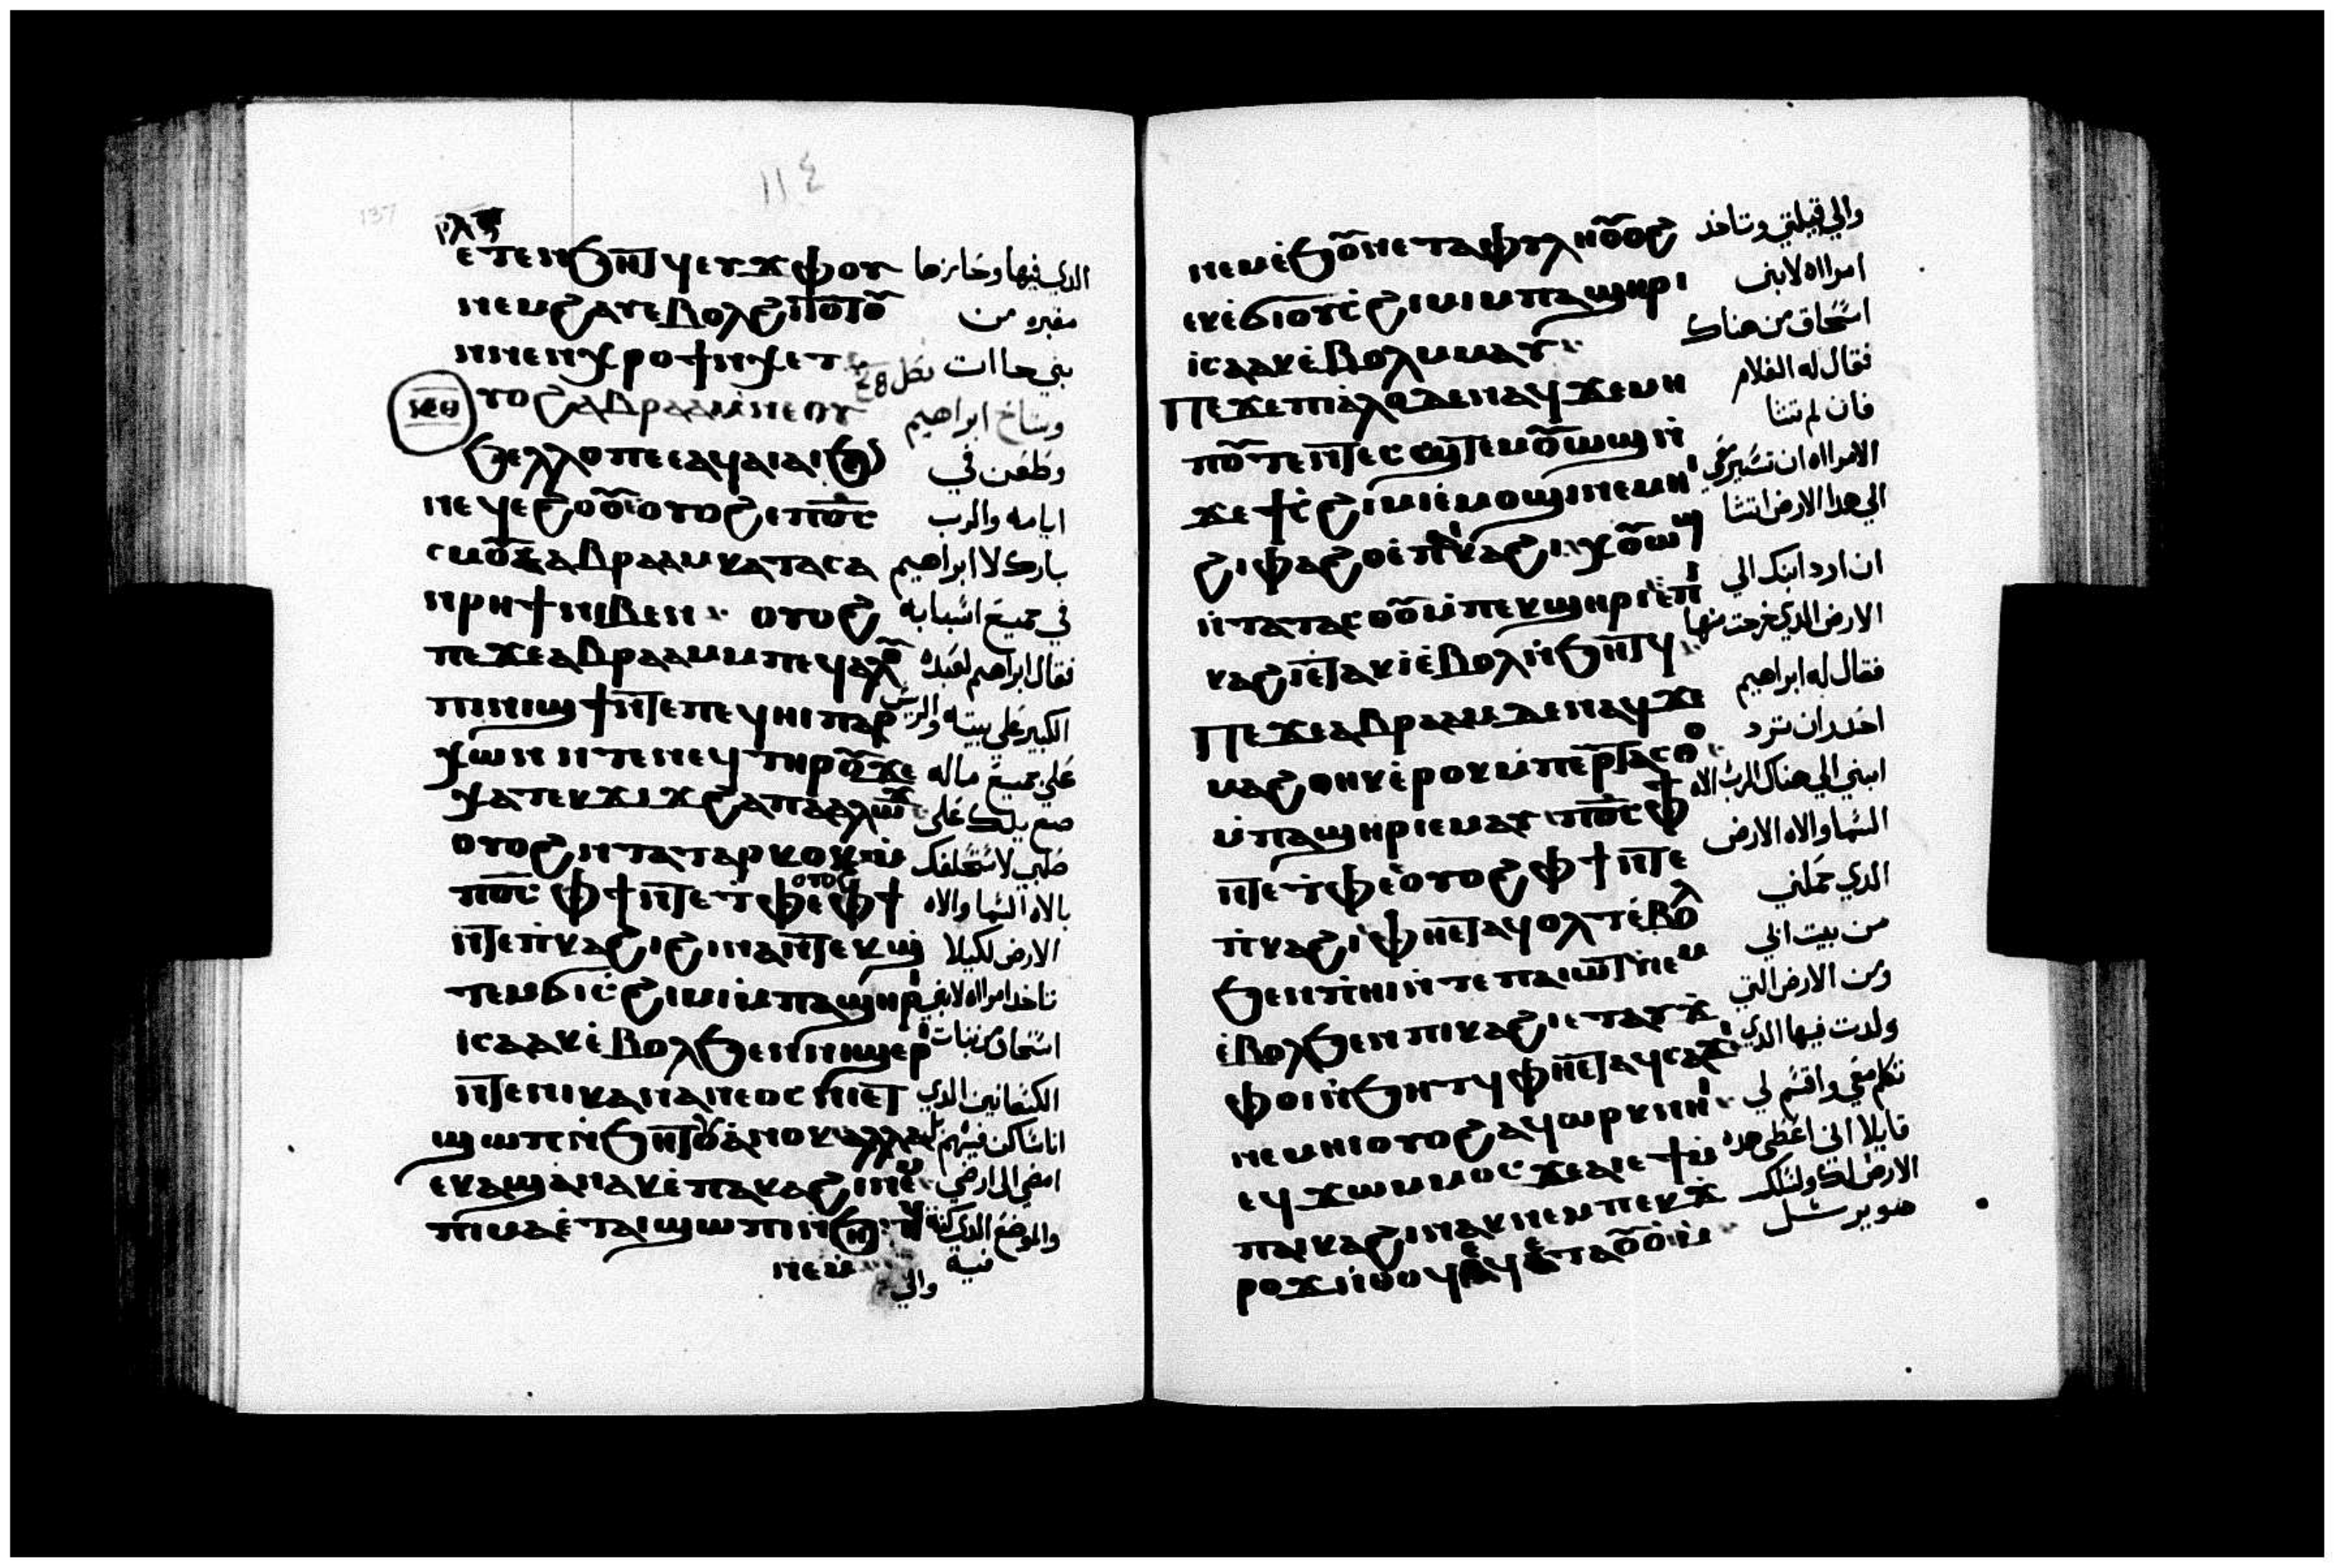 137
١١٤
ⲣⲗⲍ
ⲉⲧⲉⲛϧⲏⲧϥ ⲉⲩϫⲫⲟⲩ الدي فيها وحايزها
ⲛⲉⲙϩⲁⲩ ⲉⲃⲟⲗϩⲓⲧⲟⲧⲟⲩ مقبره من
ⲛⲛⲉⲛϣⲏⲣⲓ ⲛⲭⲉⲧ بني حاات
ⲟⲩⲟϩ ⲁⲃⲣⲁⲁⲙ ⲛⲉⲟⲩ وشاخ ابراهيم
ϧⲉⲗⲗⲟ ⲡⲉ ⲉⲁϥⲁⲓⲁⲓ ϧ وطعن في
ⲛⲉϥⲉϩⲟⲟⲩ ⲟⲩⲟϩ ⲉⲡⲟ̅ⲥ̅ ايامه والرب
ⲥⲙⲟⲩ ⲉⲁⲃⲣⲁⲁⲙ ⲕⲁⲧⲁ ⲥⲁ بارك لا ابراهيم
ⲛⲣⲏϯ ⲛⲓⲃⲉⲛ ⲟⲩⲟϩ في جميع اشبابه
ⲡⲉϫⲉ ⲁⲃⲣⲁⲁⲙ ⲙⲡⲉϥⲁⲗⲟⲩ فقال ابراهيم لعبده
ⲡⲓⲛⲓϣϯ ⲛⲧⲉ ⲡⲉϥⲏⲓ ⲡⲁⲣ الكبير علي بيته والريس
ⲭⲱⲛ ⲛⲧⲉ ⲛⲉϥ ⲧⲏⲣⲟⲩ ϫⲉ علي جميع ماله
ⲭⲁ ⲧⲉⲕϫⲓϫ ϩⲁ ⲡⲁⲁⲗⲱϫ ضع يدك علي
ⲟⲩⲟϩ ⲛⲧⲁⲧⲁⲣⲕⲟⲕ ⲙ صلبي لاستحلفك
ⲡⲟ̅ⲥ̅ ⲫϯ ⲛⲧⲉ ⲧⲫⲉ ⲟⲩⲟϩ ⲫϯ بالاه السما والاه
ⲛⲧⲉ ⲡⲕⲁϩⲓ ϩⲓⲛⲁ ⲛⲧⲉⲕϣ الارض لكيلا
ⲧⲉⲙϭⲓ ⲥϩⲓⲙⲓ ⲙⲡⲁϣⲏⲣⲓ تاخد امرااه لابني
ⲓⲥⲁⲁⲕ ⲉⲃⲟⲗϧⲉⲛ ⲛⲓϣⲉⲣⲓ اسحاق من بنات
ⲛⲧⲉ ⲛⲓⲭⲁⲛⲁⲛⲉⲟⲥ ⲛⲏⲉⲧ الكنعانين الدي
ϣⲱⲡ ⲛϧⲏⲧⲟⲩ ⲁⲛⲟⲕ ⲁⲗⲗⲁ اناساكن فيهم بل
ⲉⲕⲁϣⲁⲛⲁⲕ ⲉⲡⲁⲕⲁϩⲓ ⲛⲉⲙ امضي الي ارضي
ⲡⲓⲙⲁ ⲉⲧⲁⲓϣⲱⲡⲓ ⲛϧ والموضع الدي كنت
ⲛⲉⲙ فيه والي
ⲛⲉⲙ ⲉϧⲟⲩⲛ ⲉⲧⲁⲫⲩⲗⲏ ⲟⲩⲟϩ والي قبيلتي وتاخد
ⲉⲕⲉϭⲓ ⲟⲩⲥϩⲓⲙⲓ ⲙⲡⲁϣⲏⲣⲓ امرااه لابني
ⲓⲥⲁⲁⲕ ⲉⲃⲟⲗⲙⲙⲁⲩ اسحاق من هناك
ⲡⲉϫⲉ ⲡⲓⲁⲗⲟⲩ ⲇⲉ ⲛⲁϥ ϫⲉ ⲙⲏ فقال له الغلام
ⲡⲟⲧⲉ ⲛⲧⲉⲥϣⲧⲉⲙⲟⲩⲱϣ ⲛ فان لم تشا
ϫⲉ ϯⲥϩⲓⲙⲓ ⲉⲙⲟϣⲓ ⲛⲉⲙⲏⲓ الامرااه ان تسير معي
ϩⲓⲫⲁϩⲟⲩ ⲉⲡⲕⲁϩⲓ ⲭⲟⲩⲱϣ الي هدا الارض اتشا
ⲛⲧⲁⲧⲁⲥⲑⲟ ⲙⲡⲉⲕϣⲏⲣⲓ ⲉⲡⲓ ان ارد ابنك الي
ⲕⲁϩⲓ ⲉⲧⲁⲕⲓ ⲉⲃⲟⲗⲛϧⲏⲧϥ الارض الدي خرجت منها
ⲡⲉϫⲉ ⲁⲃⲣⲁⲁⲙ ⲇⲉ ⲛⲁϥ ϫⲉ فقال له ابراهيم
ⲙⲁϩⲑⲏⲕ ⲉⲣⲟⲕ ⲙⲡⲉⲣⲧⲁⲥⲑⲟ احدر ان ترد
ⲙⲡⲁϣⲏⲣⲓ ⲉⲙⲁⲩ ⲡⲟ̅ⲥ̅ ⲫϯ ابني الي هناك الرب الاه
ⲛⲧⲉ ⲧⲫⲉ ⲟⲩⲟϩ ⲫϯ ⲛⲧⲉ السما والاه الارض
ⲡⲕⲁϩⲓ ⲫⲏⲉⲧⲁϥⲟⲗⲧ ⲉⲃⲟⲗ الدي حملني
ϧⲉⲛ ⲡⲏⲓ ⲛⲧⲉ ⲡⲁⲓⲱⲧ ⲛⲉⲙ من بيت ابي
ⲉⲃⲟⲗϧⲉⲛ ⲡⲓⲕⲁϩⲓ ⲉⲧⲁⲩϫ ومن الارض التي
ⲫⲟⲓ ⲛϧⲏⲧϥ ⲫⲏⲉⲧⲁϥⲥⲁϫⲓ ولدت فيها الدي
ⲛⲉⲙⲏⲓ ⲟⲩⲟϩ ⲁϥⲱⲣⲕ ⲛⲏⲓ تكلم معي واقسم لي
ⲉϥϫⲱⲙⲙⲟⲥ ϫⲉ ⲁⲓⲉϯ ⲙ قايلا اني اعطي هده
ⲡⲁⲓⲕⲁϩⲓ ⲛⲁⲕ ⲛⲉⲙ ⲡⲉⲕϫ الارض لك ولنسلك
ⲣⲟϫ ⲛⲑⲟϥ ⲉϥⲉⲧⲁⲟⲩⲟ ⲙ هو يرسل